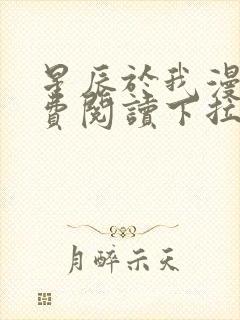 星辰於我漫
費閱讀下拉
月醉示天